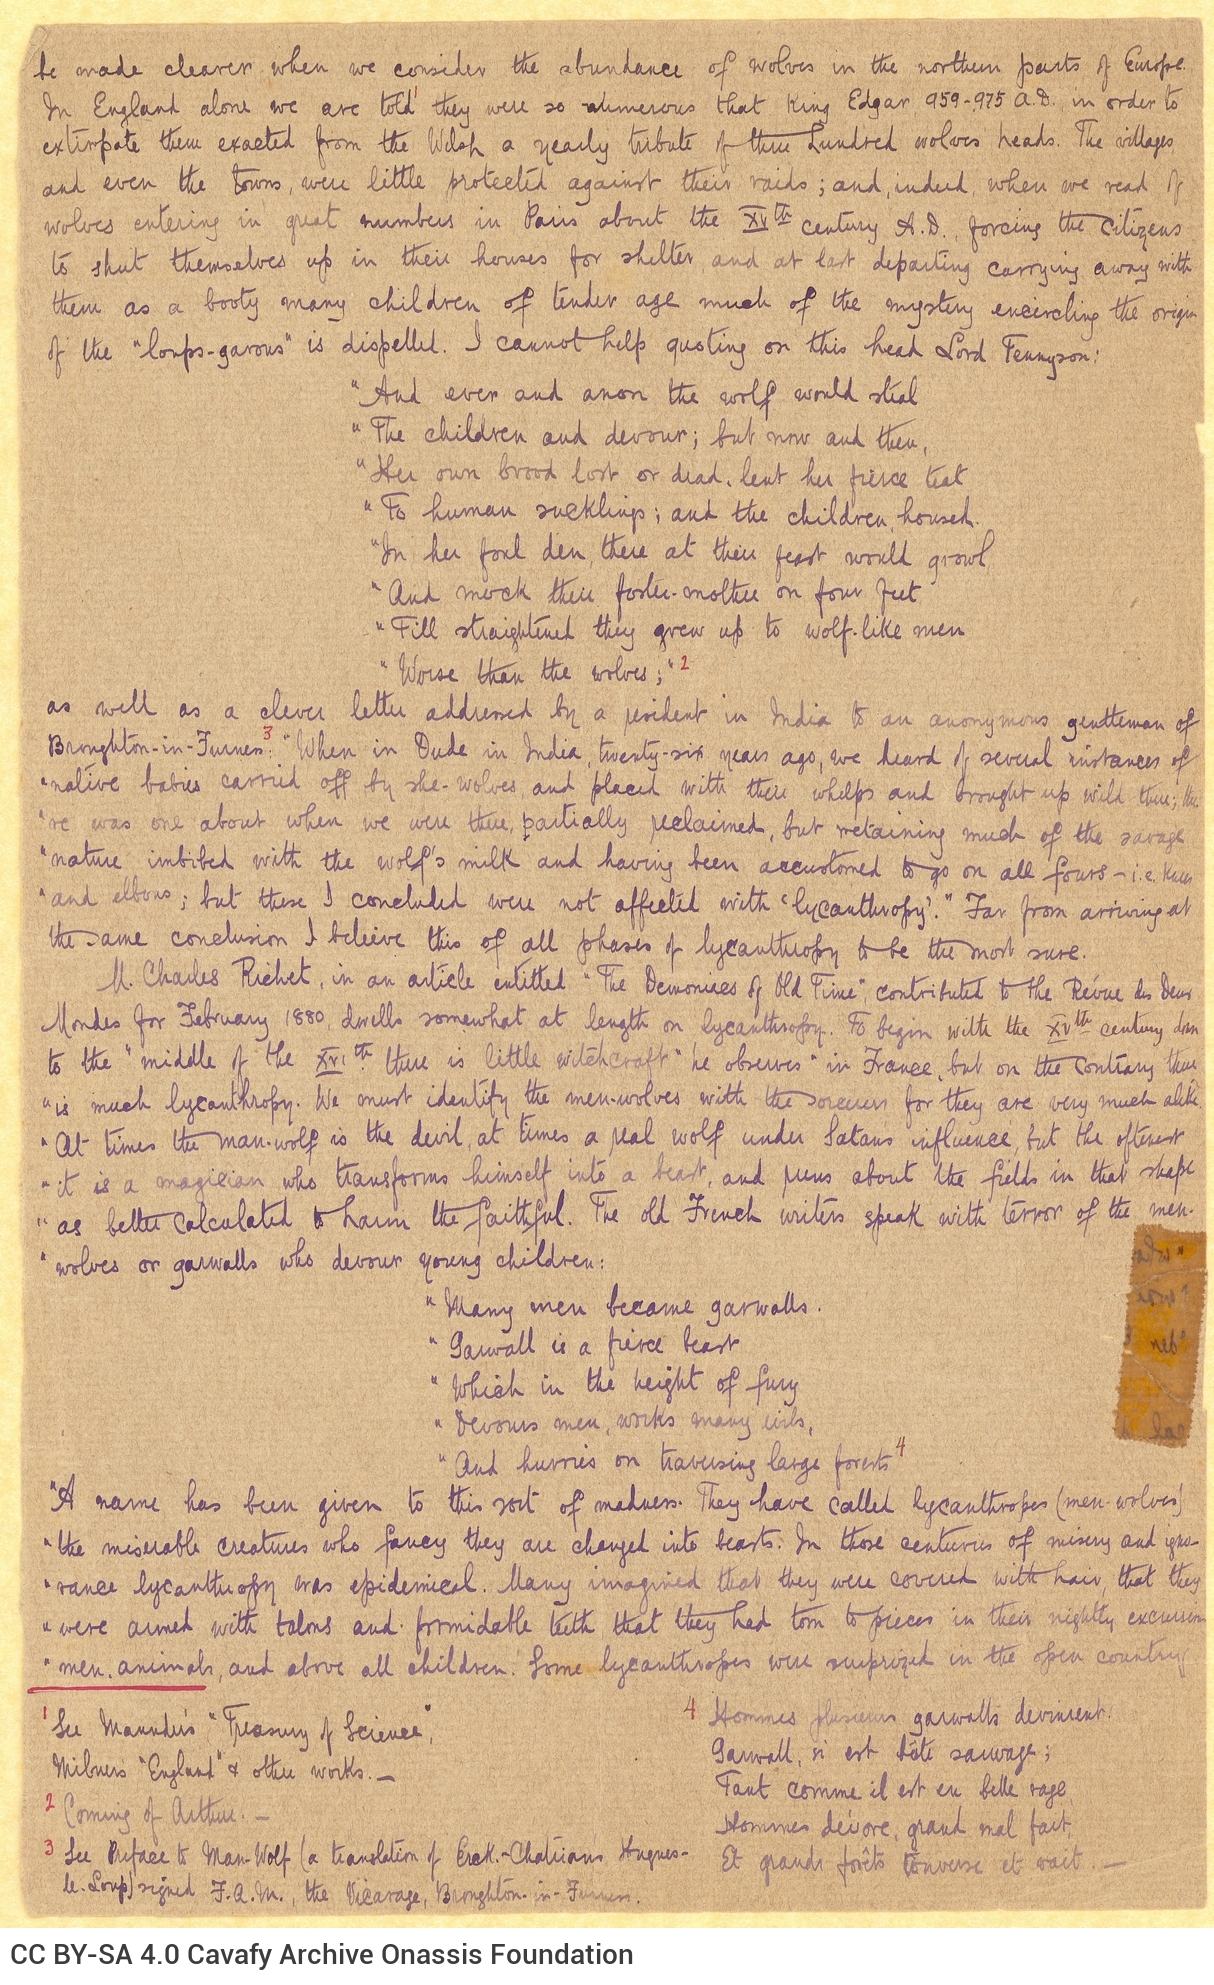 be made clearer when we consider the abundance of wolves in the northern parts of Europe.
In England alone we are told¹ they were so numerous that King Edgar 959-975 A.D. in order to
extirpate them exacted from the Welsh a yearly tribute of three hundred wolves heads. The villages,
and even the towns, were little protected against their raids; and, indeed, when we read of
wolves entering in great numbers in Paris about the XVth century A.D., forcing the citizens
to shut themselves up in their houses for shelter and at last departing carrying away with
them as a booty many children of tender age much of the mystery encircling the origin
of the "loups-garous" is dispelled. I cannot help quoting on this head Lord Tennyson:
"And ever and anon the wolf would steal
"The children and devour; but now and then,
"Her own brood lost or dead, lent her fierce teat
"To human sucklings; and the children, housed
"In her foul den, there at their feast would growl,
"And mock their foster-mother on four feet
"Till straightened they grew up to wolf-like men
"Worse than the wolves;"²
as well as a clever letter addressed by a resident in India to an anonymous gentleman of
Broughton-in-Furness³: "When in Oude in India, twenty-six years ago, we heard of several instances of
"native babies carried off by she-wolves, and placed with their whelps and brought up wild there; the
"re was one about when we were there, partially reclaimed, but retaining much of the savage
"nature imbibed with the wolf's milk and having been accustomed to go on all fours – i.e. knees
"and elbows; but these I concluded were not affected with 'lycanthropy'." Far from arriving at
the same conclusion I believe this of all phases of lycanthropy to be the most sure.
M. Charles Richet, in an article entitled "The Demoniacs of Old Time", contributed to the Révue des Deux
Mondes for February 1880, dwells somewhat at length on lycanthropy. To begin with the XVth century down
to the "middle of the XVIth there is little witchcraft" he observes "in France, but on the contrary there
"is much lycanthropy. We must identify the men-wolves with the sorcerers for they are very much alike.
"At times the man-wolf is the devil, at times a real wolf under Satans influence, but the oftenest
"it is a magician who transforms himself into a beast, and runs about the fields in that shape
"as better calculated to harm the faithful. The old French writers speak with terror of the men-
"wolves or garwalls who devour young children:
"Many men became garwalls.
"Garwall is a fierce beast
"Which in the height of fury
"Devours men, works many evils,
"And hurries on traversing large forests⁴
"A name has been given to this sort of madness. They have called lycanthropes (men-wolves)
"the miserable creatures who fancy they are changed into beasts. In those centuries of misery and igno-
"rance lycanthropy was epidemical. Many imagined that they were covered with hair, that they
"were armed with talons and formidable teeth that they had torn to pieces in their nightly excursions
"men, animals, and above all children. Some lycanthropes were surprized in the open country
¹ See Maunder's "Treasury of Science",
Milner's "England" & other works. —
² Coming of Arthur. —
³ See Preface to Man-Wolf (a translation of Erck.-Chatrians Hugues-
le-Loup) signed F.A.M., the Vicarage, Broughton-in-Furness.
⁴ Hommes plusieurs garwalls devinrent.
Garwall, si est bête sauvage;
Tant comme il est en belle rage,
Hommes dévore, grand mal fait,
Et grands forêts converse et vait. —
CC BY-SA 4.0 Cavafy Archive Onassis Foundation